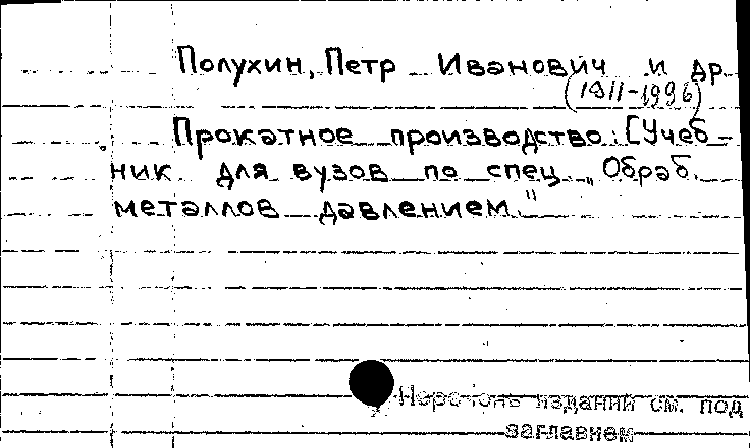 Полухин, Петр Иванович и др
(1911-1996)
Прокатное производство: [Учеб-
ник для вузов по спец. „Обраб.
металлов давлением."
Перечень изданий см. под
заглавием